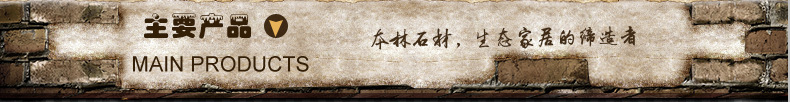 主要产品
MAIN PRODUCTS
本林石材，生态家居的缔造者